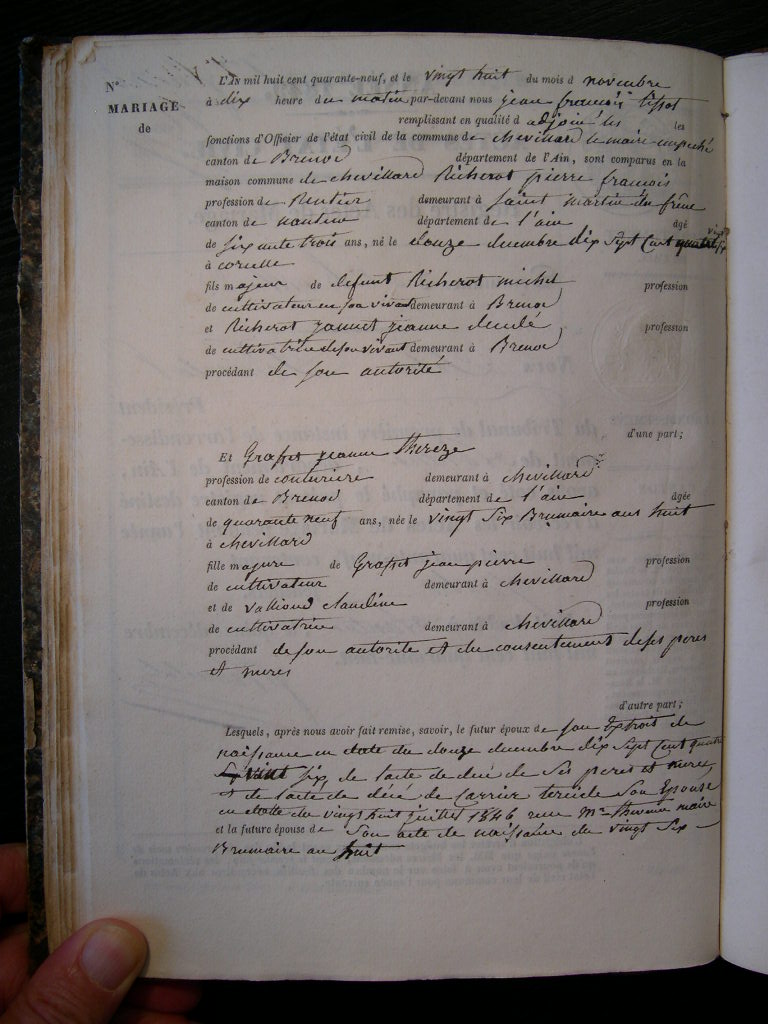 N°
MARIAGE
de
L'AN mil huit cent quarante-neuf, et le vingt huit du mois d novembre
à dix heure du matin par-devant nous jean francois tissot
remplissant en qualité d adjoint les
fonctions d'Officier de l'état civil de la commune de chevillard le maire empeché
canton de Brenod département de l'Ain, sont comparus en la
maison commune de chevillard Richerot pierre francois
profession de Rentier demeurant à saint martin du frêne
canton de nantua département de l'ain âgé
de soixante trois ans, né le douze decembre dix sept Cent quatre vingt six
à corcelle
fils majeur de defunt Richerot michel profession
de cultivateur en son vivant demeurant à Brenod
et Richerot jeanne decedé profession
de cultivatrice de son vivant demeurant à Brenod
procédant de son autorité
d'une part;
Et Grosset jeanne thereze
profession de couturiere demeurant à chevillard
canton de Brenod département de l'ain âgée
de quarante neuf ans, née le vingt six Brumaire ans huit
à chevillard
fille majeure de Grosset jean pierre profession
de cultivateur demeurant à chevillard
et de claudine profession
de cultivatrice demeurant à chevillard
procédant de son autorite et du consentement de ses peres
et meres
d'autre part;
Lesquels, après nous avoir fait remise, savoir, le futur époux de son Extrait de
naissance en date du douze decembre dix sept Cent quatre
vint six, de l'acte de decé de ses peres et meres,
et de l'acte de décé de Carrier son Epouse
en date du vingt huit juillet 1846 maire
et la future épouse de son acte de naissance du vingt six
Brumaire an huit